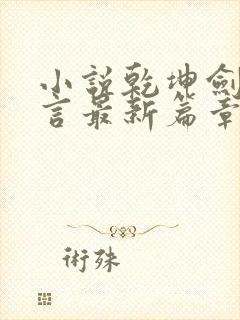 小說乾坤劍
言最新篇章
術殊